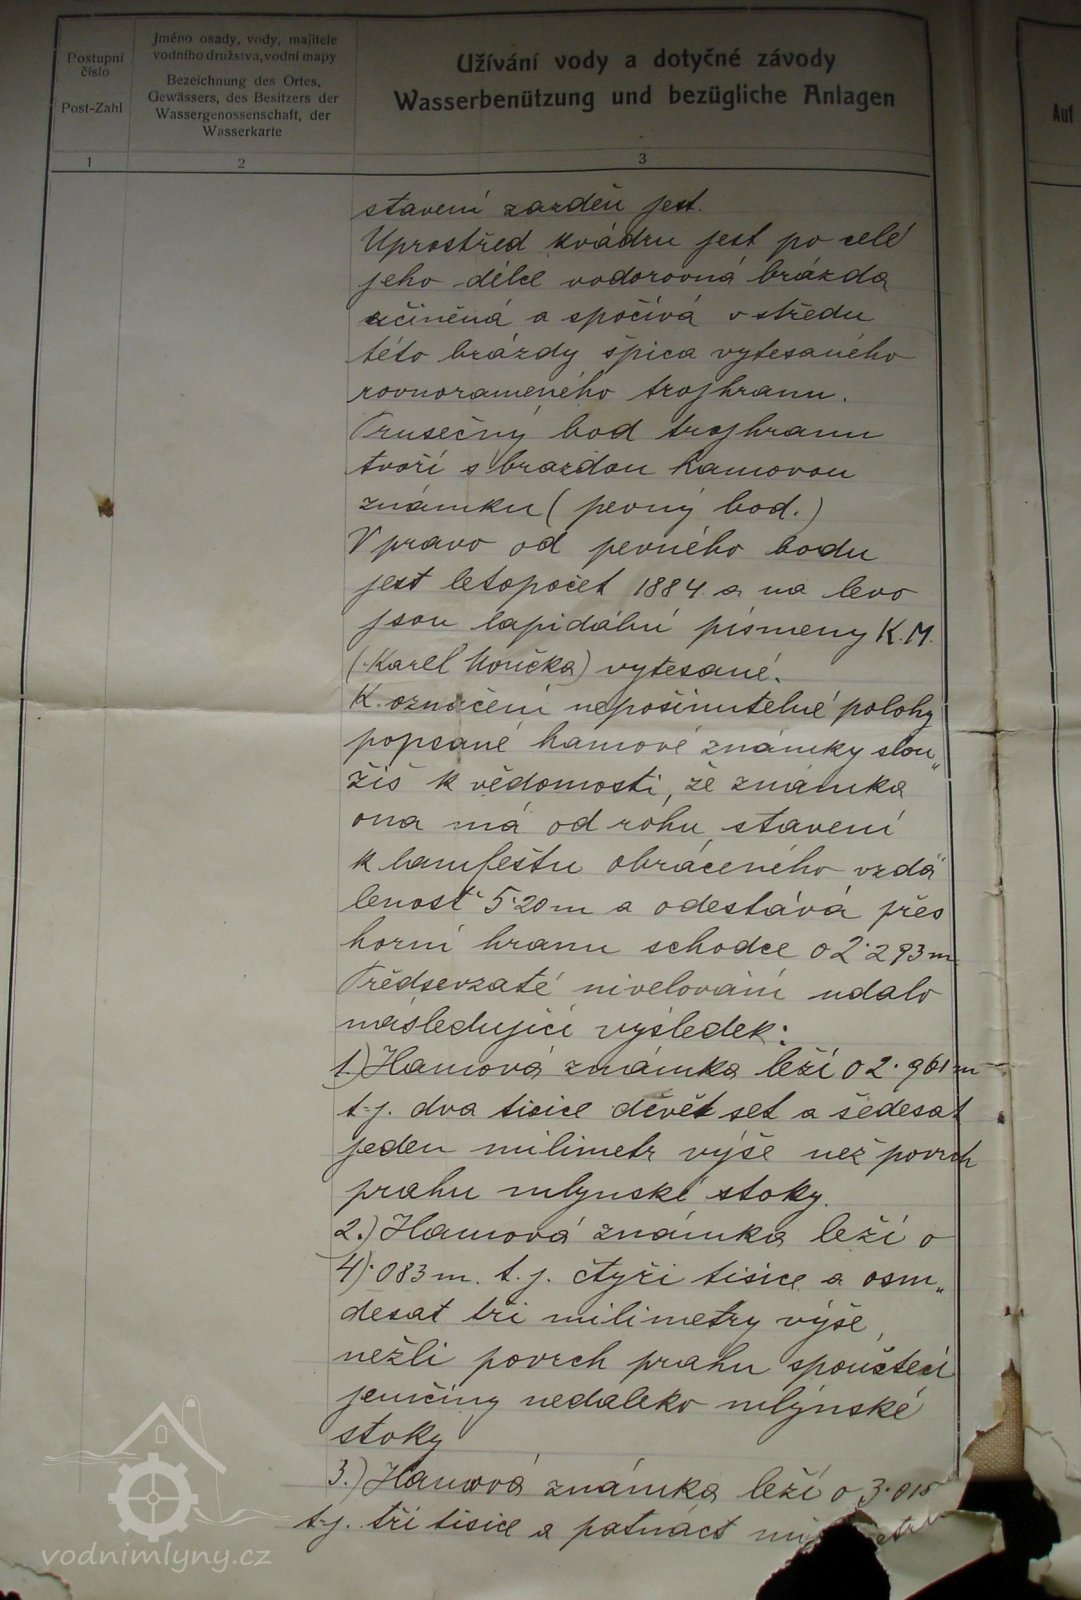 Postupní
číslo
Post-Zahl
Jméno osady, vody, majitele
vodního družstva, vodní mapy
Bezeichnung des Ortes,
Gewässers, des Besitzers der
Wassergenossenschaft, der
Wasserkarte
Užívání vody a dotyčné závody
Wasserbenützung und bezügliche Anlagen
Auf
1
2
3
stavení zazděn jest.
Uprostřed kvádru jest po celé
jeho délce vodorovná brázda
učiněná a spočívá v středu
této brázdy špica vytesaného
rovnorameného trojhranu.
Průsečný bod trojhranu
tvoří s brazdou hamovou
známku (pevný bod.)
V pravo od pevného bodu
jest letopočet 1884. a na levo
jsou lapidální písmeny K.M.
(Karel) vytesané.
K označení nepošinutelné polohy
popsané hamové známky slou„
žiš k vědomosti, že známka
ona má od rohu stavení
k lamfeštu obráceného vzdá„
lenost 5·20 m a odestává přes
horní hranu schodce o 2·293 m
Předsevzaté nivelování udalo
následující výsledek:
1.) Hamová známka leží o 2·961 m
t.j. dva tisíce devět set a šedesat
jeden milimetr výše než povrch
prahu mlynské stoky.
2.) Hamová známka leží o
4·083 m. t.j. čtyři tisíce a osm„
desat tři milimetry výše,
nežli povrch prahu spouštecí
jeučiny nedaleko mlýnské
stoky
3.) Hamová známka leží o 3·015
t.j. tři tisíce a patnáct
vodnimlyny.cz